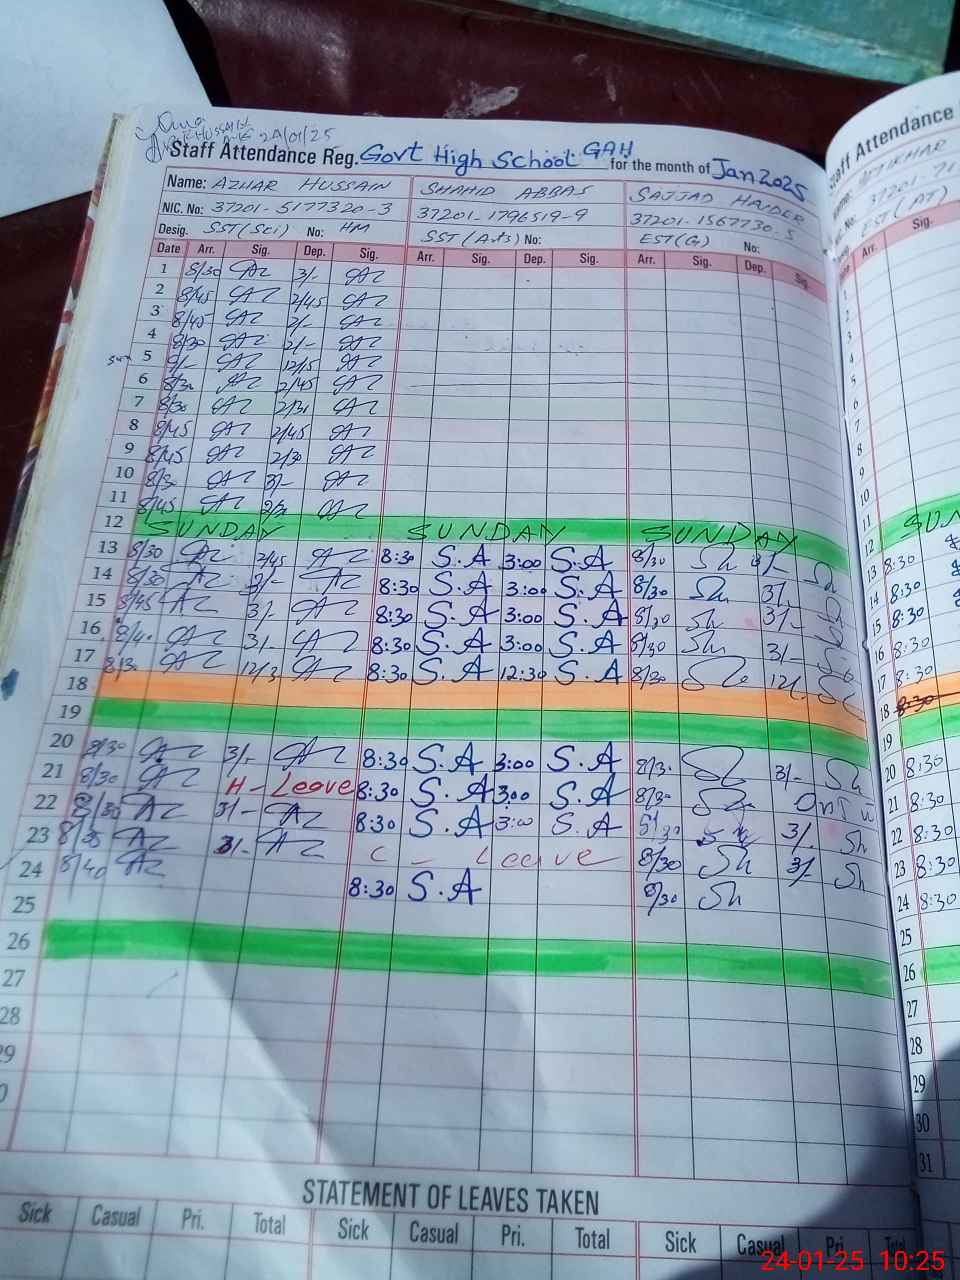 24/01/25
Staff Attendance Reg. Govt High School GAH for the month of Jan 2025
Name: AZHAR HUSSAIN SHAHID ABBAS SAJJAD HAIDER
NIC. No: 37201-5177320-3 37201-1796519-9 37201-1567730-5
Desig. SST(Sci) No: HM SST(Arts) No: EST(G) No:
Date Arr. Sig. Dep. Sig. Arr. Sig. Dep. Sig. Arr. Sig. Dep. Sig.
1 8/30 AZ 3/- AZ
2 8/45 AZ 2/45 AZ
3 8/45 AZ 2/- AZ
4 8/30 AZ 2/- AZ
5 9/- AZ 12/15 AZ
6 8/30 AZ 2/45 AZ
7 8/30 AZ 2/30 AZ
8 8/45 AZ 2/45 AZ
9 8/45 AZ 2/30 AZ
10 8/30 AZ 3/- AZ
11 8/45 AZ 2/30 AZ
12 SUNDAY SUNDAY SUNDAY
13 8/30 AZ 2/45 AZ 8:30 S.A 3:00 S.A 8/30 Sh 3/- Sh
14 8/30 AZ 3/- AZ 8:30 S.A 3:00 S.A 8/30 Sh 3/- Sh
15 8/45 AZ 3/- AZ 8:30 S.A 3:00 S.A 8/30 Sh 3/- Sh
16 8/40 AZ 3/- AZ 8:30 S.A 3:00 S.A 8/30 Sh 3/- Sh
17 8/30 AZ AZ 8:30 S.A 12:30 S.A 8/30 Sh Sh
18
19
20 8/30 AZ 3/- AZ 8:30 S.A 3:00 S.A 8/30 Sh 3/- Sh
21 8/30 AZ H-Leave 8:30 S.A 3:00 S.A 8/30 Sh
22 8/30 AZ 3/- AZ 8:30 S.A 3:00 S.A 8/30 Sh 3/- Sh
23 8/35 AZ 3/- AZ C - Leave 8/30 Sh 3/- Sh
24 8/40 AZ 8:30 S.A 8/30 Sh
25
26
27
28
29
STATEMENT OF LEAVES TAKEN
Sick Casual Pri. Total Sick Casual Pri. Total Sick Casual Pri. Total
Staff Attendance
37201-71
EST(AT)
Arr. Sig.
1
2
3
4
5
6
7
8
9
10
11
12 SUN
13 8:30
14 8:30
15 8:30
16 8:30
17 8:30
18 8:30
19
20 8:30
21 8:30
22 8:30
23 8:30
24 8:30
25
26
27
28
29
30
31
24-01-25 10:25